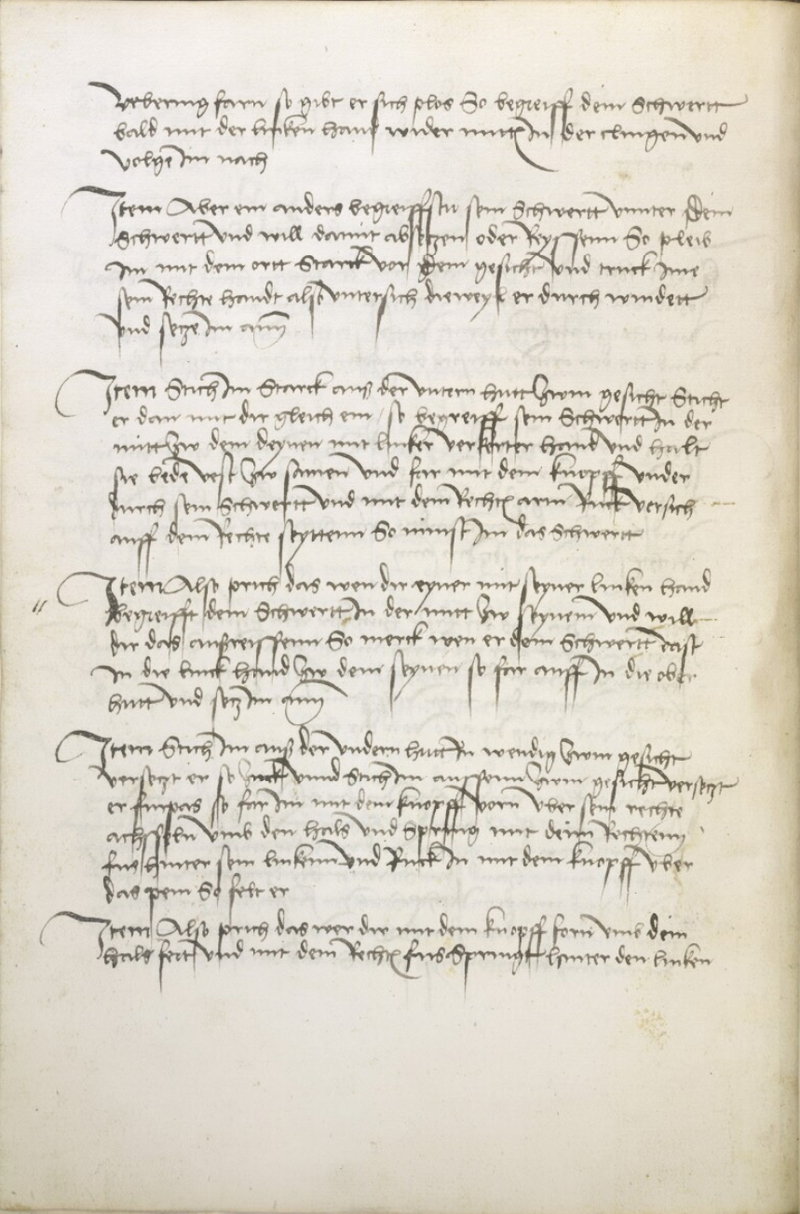 Vebering farn so gibt er sich plos So begreiff dein Schwertt
bald mit der lincken hant wider mitt In der clingen vnd
volge Im nach
Item Aber ein anders begreiffstu sein Schwertt vnnter dem
Schwertt vnd will damit absetzen oder Reyssenn So pleib
Im mit dem ortt Starck vor dem gesicht vnd truck Ime
sein Rechte handt also vntersich dieweyl er durch windett
vnd setze Im ann
Item Stich Im Starck aus der vntern hutt Zwm gesicht Sticht
er dan mit dir gleich ein / so begreiff sein Schwertt In der
mitt Zw dem deynen mit lincker verkerter hand vnd halt
sie bede vest Zw samen vnd far mit dem knopff vnder
durch sein Schwertt vnd mit dem Rechten arm Ruck vbersich
auff dein Rechte seyttenn So nimst Im das Schwertt
Item Also prich das wen dir eyner mit seyner lincken hand
begreifft dein Schwertt In der mitt Zw seynem vnd will
dir das ausreissenn So merck wen er dein Schwertt vast
In die linck hand Zw dem seynen so far auff In die ober
hutt vnd setz Im ann
Item Stich Im aus der vndern hutt In wendig Zwm gesicht
versetzt er so Zuck vnnd Stich Im aussenn Zwm gesicht versetzt
er furpas so far Im mit dem knopff vorn vber sein rechte
achsseln vmb den hals vnd Spring mit deim Rechtenn
fus hinter sein linckenn vnd Ruck In mit dem knopff vber
das pein So felt er
Item Also prich das wer dir mit dem knopff forn vmb dein
hals fertt vnd mit dem Rechten fus Springt hinter den lincken